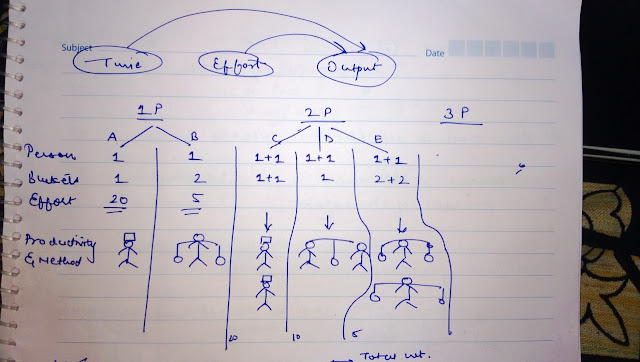 Subject
Date
Time Effort Output
1 P 2 P 3 P
A B C D E
Person 1 1 1+1 1+1 1+1
Buckets 1 2 1+1 1 2+2
Effort 20 5
Productivity
& Method
20 10 5
→ Total wt.